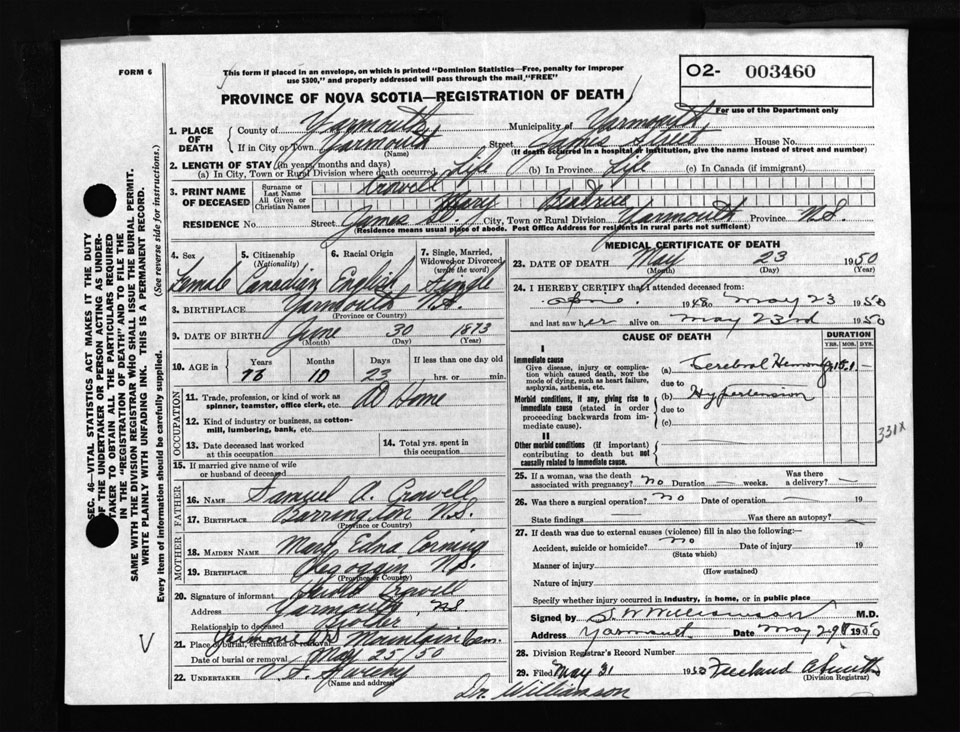 FORM 6
This form if placed in an envelope, on which is printed "Dominion Statistics—Free, penalty for improper
use $300," and properly addressed will pass through the mail "FREE"
O2- 003460
PROVINCE OF NOVA SCOTIA—REGISTRATION OF DEATH
For use of the Department only
1. PLACE OF DEATH
County of Yarmouth Municipality of Yarmouth
If in City or Town Yarmouth Street James Street House No.
(Name) (If death occurred in a hospital or institution, give the name instead of street and number)
2. LENGTH OF STAY (in years, months and days)
(a) In City, Town or Rural Division where death occurred Life (b) In Province Life (c) In Canada (if immigrant)
3. PRINT NAME OF DECEASED
Surname or Last Name Crowell
All Given or Christian Names Mary Beatrice
RESIDENCE No. Street James St. City, Town or Rural Division Yarmouth Province N.S.
(Residence means usual place of abode. Post Office Address for residents in rural parts not sufficient)
4. Sex 5. Citizenship (Nationality) 6. Racial Origin 7. Single, Married, Widowed or Divorced (write the word)
Female Canadian English Single
8. BIRTHPLACE Yarmouth N.S.
(Province or Country)
9. DATE OF BIRTH June 30 1873
(Month) (Day) (Year)
10. AGE in Years Months Days If less than one day old
76 10 23 hrs. or min.
OCCUPATION
11. Trade, profession, or kind of work as spinner, teamster, office clerk, etc. At Home
12. Kind of industry or business, as cotton-mill, lumbering, bank, etc.
13. Date deceased last worked at this occupation
14. Total yrs. spent in this occupation
15. If married give name of wife or husband of deceased
FATHER
16. NAME Samuel A. Crowell
17. BIRTHPLACE Barrington N.S.
(Province or Country)
MOTHER
18. MAIDEN NAME Mary Edna Corning
19. BIRTHPLACE N.S.
(Province or Country)
20. Signature of informant Crowell
Address Yarmouth, N.S.
Relationship to deceased Brother
21. Place of burial, cremation or removal Mountain Cem.
Date of burial or removal May 25/50
22. UNDERTAKER V. S.
(Name and address)
MEDICAL CERTIFICATE OF DEATH
23. DATE OF DEATH May 23 1950
(Month) (Day) (Year)
24. I HEREBY CERTIFY that I attended deceased from:
1948 to May 23 1950
and last saw her alive on May 23rd 1950
CAUSE OF DEATH
DURATION
YRS. MOS. DYS.
I
Immediate cause
Give disease, injury or complication which caused death, not the mode of dying, such as heart failure, asphyxia, asthenia, etc.
(a) Cerebral Hemorrhage
due to
Morbid conditions, if any, giving rise to immediate cause (stated in order proceeding backwards from immediate cause).
(b) Hypertension
due to
(c)
331X
II
Other morbid conditions (if important) contributing to death but not causally related to immediate cause.
25. If a woman, was the death associated with pregnancy? no Duration — weeks. Was there a delivery? —
26. Was there a surgical operation? no Date of operation — 19
State findings Was there an autopsy? —
27. If death was due to external causes (violence) fill in also the following:
Accident, suicide or homicide? no Date of injury 19
(State which)
Manner of injury
(How sustained)
Nature of injury
Specify whether injury occurred in industry, in home, or in public place
Signed by S. W. Williamson M.D.
Address Yarmouth Date May 29 1950
28. Division Registrar's Record Number
29. Filed May 31 1950 Freeland A. Smith
(Division Registrar)
Dr. Williamson
SEC. 46—VITAL STATISTICS ACT MAKES IT THE DUTY
OF THE UNDERTAKER OR PERSON ACTING AS UNDER-
TAKER TO OBTAIN ALL THE PARTICULARS REQUIRED
IN THE "REGISTRATION OF DEATH" AND TO FILE THE
SAME WITH THE DIVISION REGISTRAR WHO SHALL ISSUE THE BURIAL PERMIT.
WRITE PLAINLY WITH UNFADING INK. THIS IS A PERMANENT RECORD.
Every item of information should be carefully supplied. (See reverse side for instructions.)